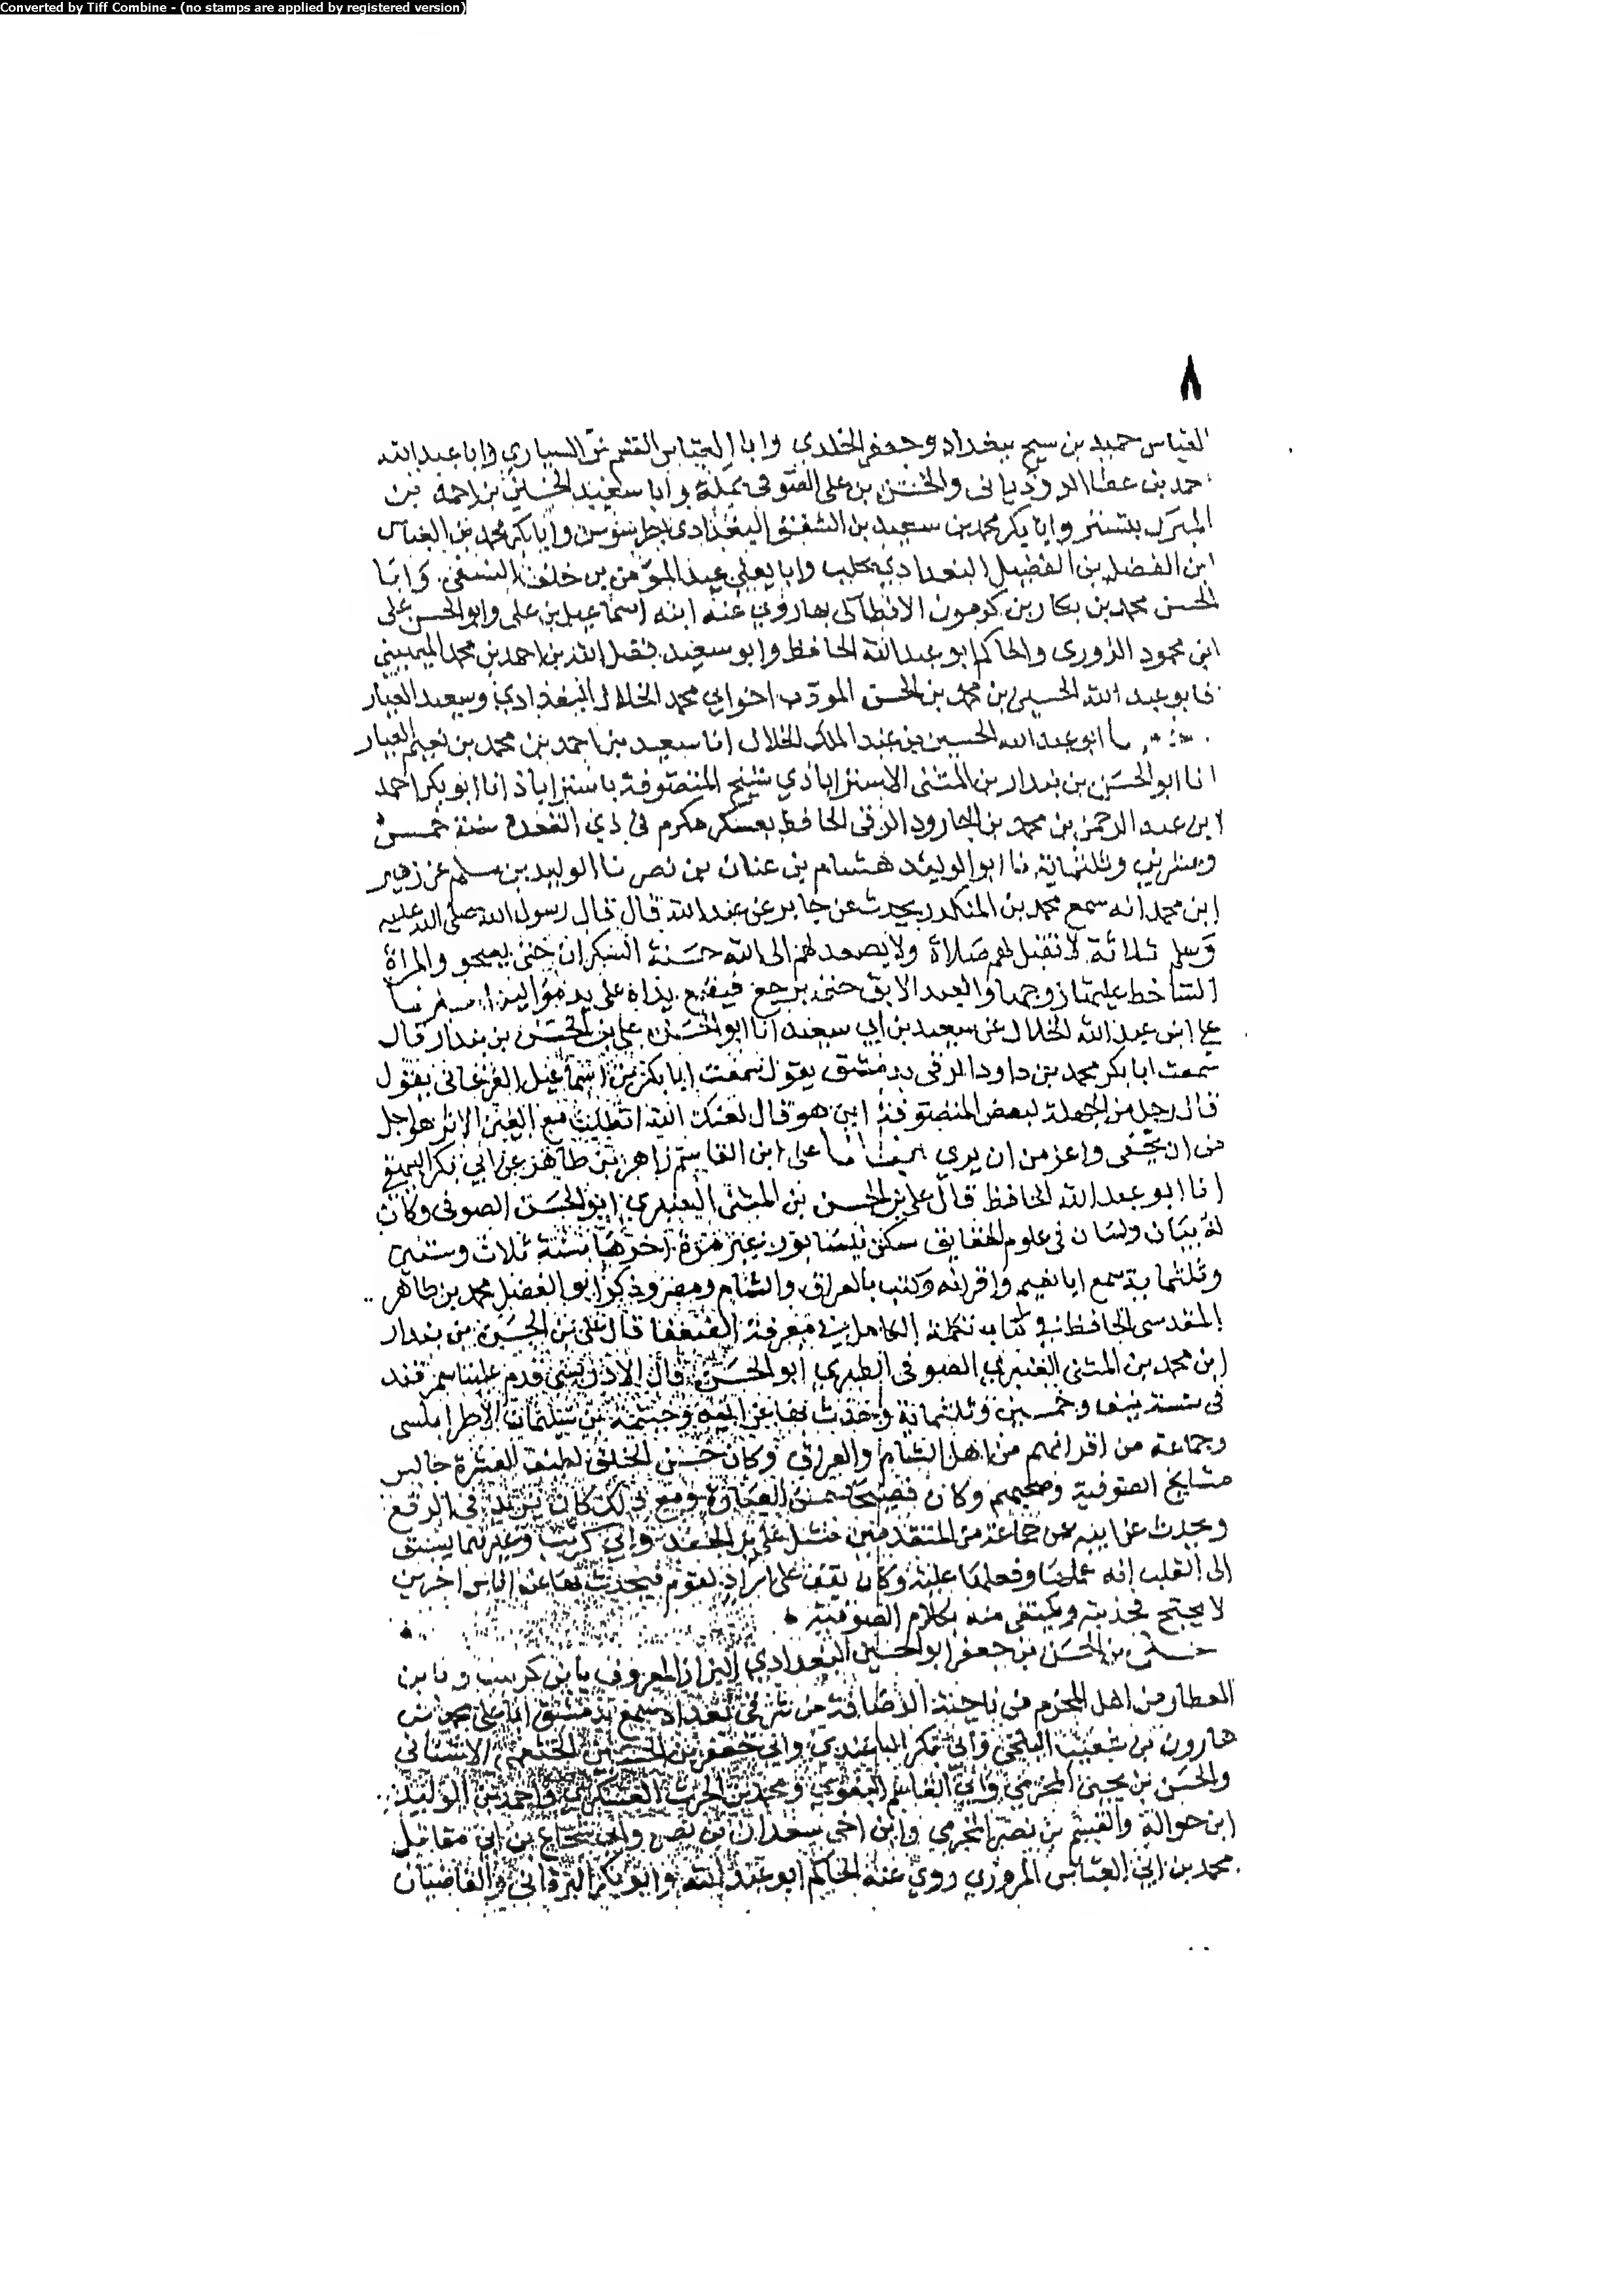 Converted by Tiff Combine - (no stamps are applied by registered version)
٨
العباس حميد بن سيح ببغداد وجعفر الخلدي وابا العباس القسم بن السياري وابا عبد الله
احمد بن عطا الروذباني والحسن بن علي الصوفي بمكة وابا سعيد الحسين بن احمد بن
المبرك بتستر وابا بكر محمد بن سعيد بن الشفق البغدادي وابا بكر محمد بن العباس
ابن الفضل بن الفضيل البغدادي بحلب وابا يعلى عبد المؤمن بن خلف النسفي وابا
الحسن محمد بن بكار بن كرمون الانطاكي بها روي عنه ابنه اسماعيل بن علي وابو الحسن علي
ابن محمود الزوزي والحاكم ابو عبد الله الحافظ وابو سعيد فضل الله بن احمد بن محمد الميهني
وابو عبد الله الحسين بن محمد بن الحسن المودب اخو ابي محمد الخلال البغدادي وسعيد العيار
ابو عبد الله الحسين بن عبد الملك الخلال انا سعيد بن احمد بن محمد بن نعيم العيار
انا ابو الحسن بن بندار بن المثنى الاستراباذي شيخ المتصوفة باستراباذ انا ابو بكر احمد
ابن عبد الرحمن بن محمد بن الجارود الرقي الحافظ بعسكر مكرم في ذي القعدة سنة خمس
وعشرين وثلثمائة نا ابو الوليد هشام بن عمار بن نصر نا الوليد بن مسلم عن زهير
ابن محمد انه سمع محمد بن المنكدر يحدث عن جابر عن عبد الله قال قال رسول الله صلى الله عليه
وسلم ثلاثة لا تقبل لهم صلاة ولا يصعد لهم الى الله حسنة السكران حتى يصحو والمراة
الساخط عليها زوجها والعبد الابق حتى يرجع فيضع يداه على يد مواليه
علي ابن عبد الله الخلال عن سعيد بن ابي سعيد انا ابو الحسن علي بن الحسن بن بندار قال
سمعت ابا بكر محمد بن داود الرقي بدمشق يقول سمعت ابا بكر بن اسماعيل الفرغاني يقول
قال رجل من الجهلة لبعض المتصوفة اين هو قال لعنك الله اتطلب مع العين الاثر هو اجل
من ان يخفى واعز من ان يرى علي ابن القاسم زاهر بن طاهر عن ابي بكر البيهقي
انا ابو عبد الله الحافظ قال علي بن الحسن بن المثنى العنبري ابو الحسن الصوفي وكان
له بيان ولسان في علوم الحقايق سكن نيسابور غير مرة اخرها سنة ثلاث وستين
وثلثماية سمع ابا نعيم واقرانه وكتب بالعراق والشام ومصر وذكر ابو الفضل محمد بن طاهر
المقدسي الحافظ في كتاب تكملة الكامل في معرفة الضعفا قال علي بن الحسن بن بندار
ابن محمد بن المثنى العنبري الصوفي الطبري ابو الحسن قال الادريسي قدم علينا سمرقند
في سنة نيف وخمسين وثلثمائة وحدث بها عن ابيه وخيثمة بن سليمان الاطرابلسي
وجماعة من اقرانهم من اهل الشام والعراق وكان حسن الخلق لطيف العشرة جالس
مشايخ الصوفية وصحبهم وكان فصيحا حسن العبارة ومع ذلك كان يزيد في الرقع
ويحدث عن ابيه عن جماعة من المتقدمين مثل علي بن الجعد وابي كريب وغيرهما يسبق
الى القلب انه عملها وفعلها عليه وكان يقف على افراد لقوم فيحدث بها عن الناس اخرين
لا يحتج بحديثه ويكتفى منه بكلام الصوفية
علي بن الحسن بن جعفر ابو الحسين البغدادي البزاز المعروف بابن كرنيب وبابن
العطار من اهل المخرم من ناحية الرصافة من شرقي بغداد سمع بدمشق ابا علي محمد بن
هارون بن شعيب البلخي وابي بكر الباغندي وابي جعفر بن الحسين الخثعمي الاشناني
والحسن بن يحيى المخرمي وابي القاسم البغوي ومحمد بن الحرث العسكري واحمد بن الوليد
ابن حوالة والقسم بن نصر المخرمي وابن اخي سعدان بن نصر وابي شجاع بن ابي مقاتل
محمد بن ابي العباس المروزي روي عنه الحاكم ابو عبد الله وابو بكر البرقاني والقاضيان